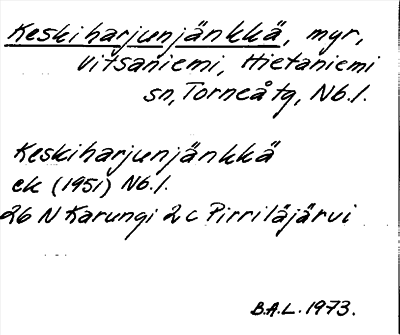 Keskiharjunjänkkä, myr,
Vitsaniemi, Hietaniemi
sn, Torneå tg, Nb.l.
Keskiharjunjänkkä
ek (1951) Nb.l.
26 N Karungi 2 c Pirriläjärvi
B.A.L. 1973.